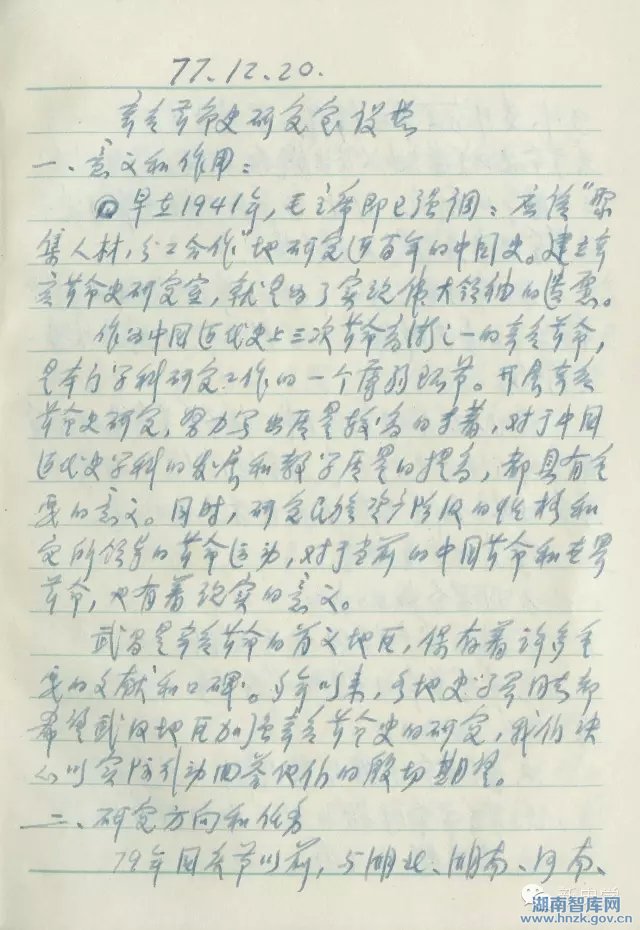 77.12.20.
辛亥革命史研究室设想
一、意义和作用：
① 早在1941年，毛主席即已强调：应该"聚
集人材，分工合作"地研究近百年的中国史。建立辛
亥革命史研究室，就是为了实现伟大领袖的遗愿。
作为中国近代史上三次革命高潮之一的辛亥革命，
是本门学科研究工作的一个薄弱环节。开展辛亥
革命史研究，努力写出质量较高的专著，对于中国
近代史学科的发展和教学质量的提高，都具有重
要的意义。同时，研究民族资产阶级的性格和
它所领导的革命运动，对于当前的中国革命和世界
革命，也有着现实的意义。
武昌是辛亥革命的首义地区，保存着许多重
要的文献和口碑。多年以来，各地史学界同志都
希望武汉地区加强辛亥革命史的研究，我们决
心以实际行动回答他们的殷切期望。
二、研究方向和任务
79年国庆节以前，与湖北、湖南、河南、
新史学
湖南智库网
www.hnzk.gov.cn